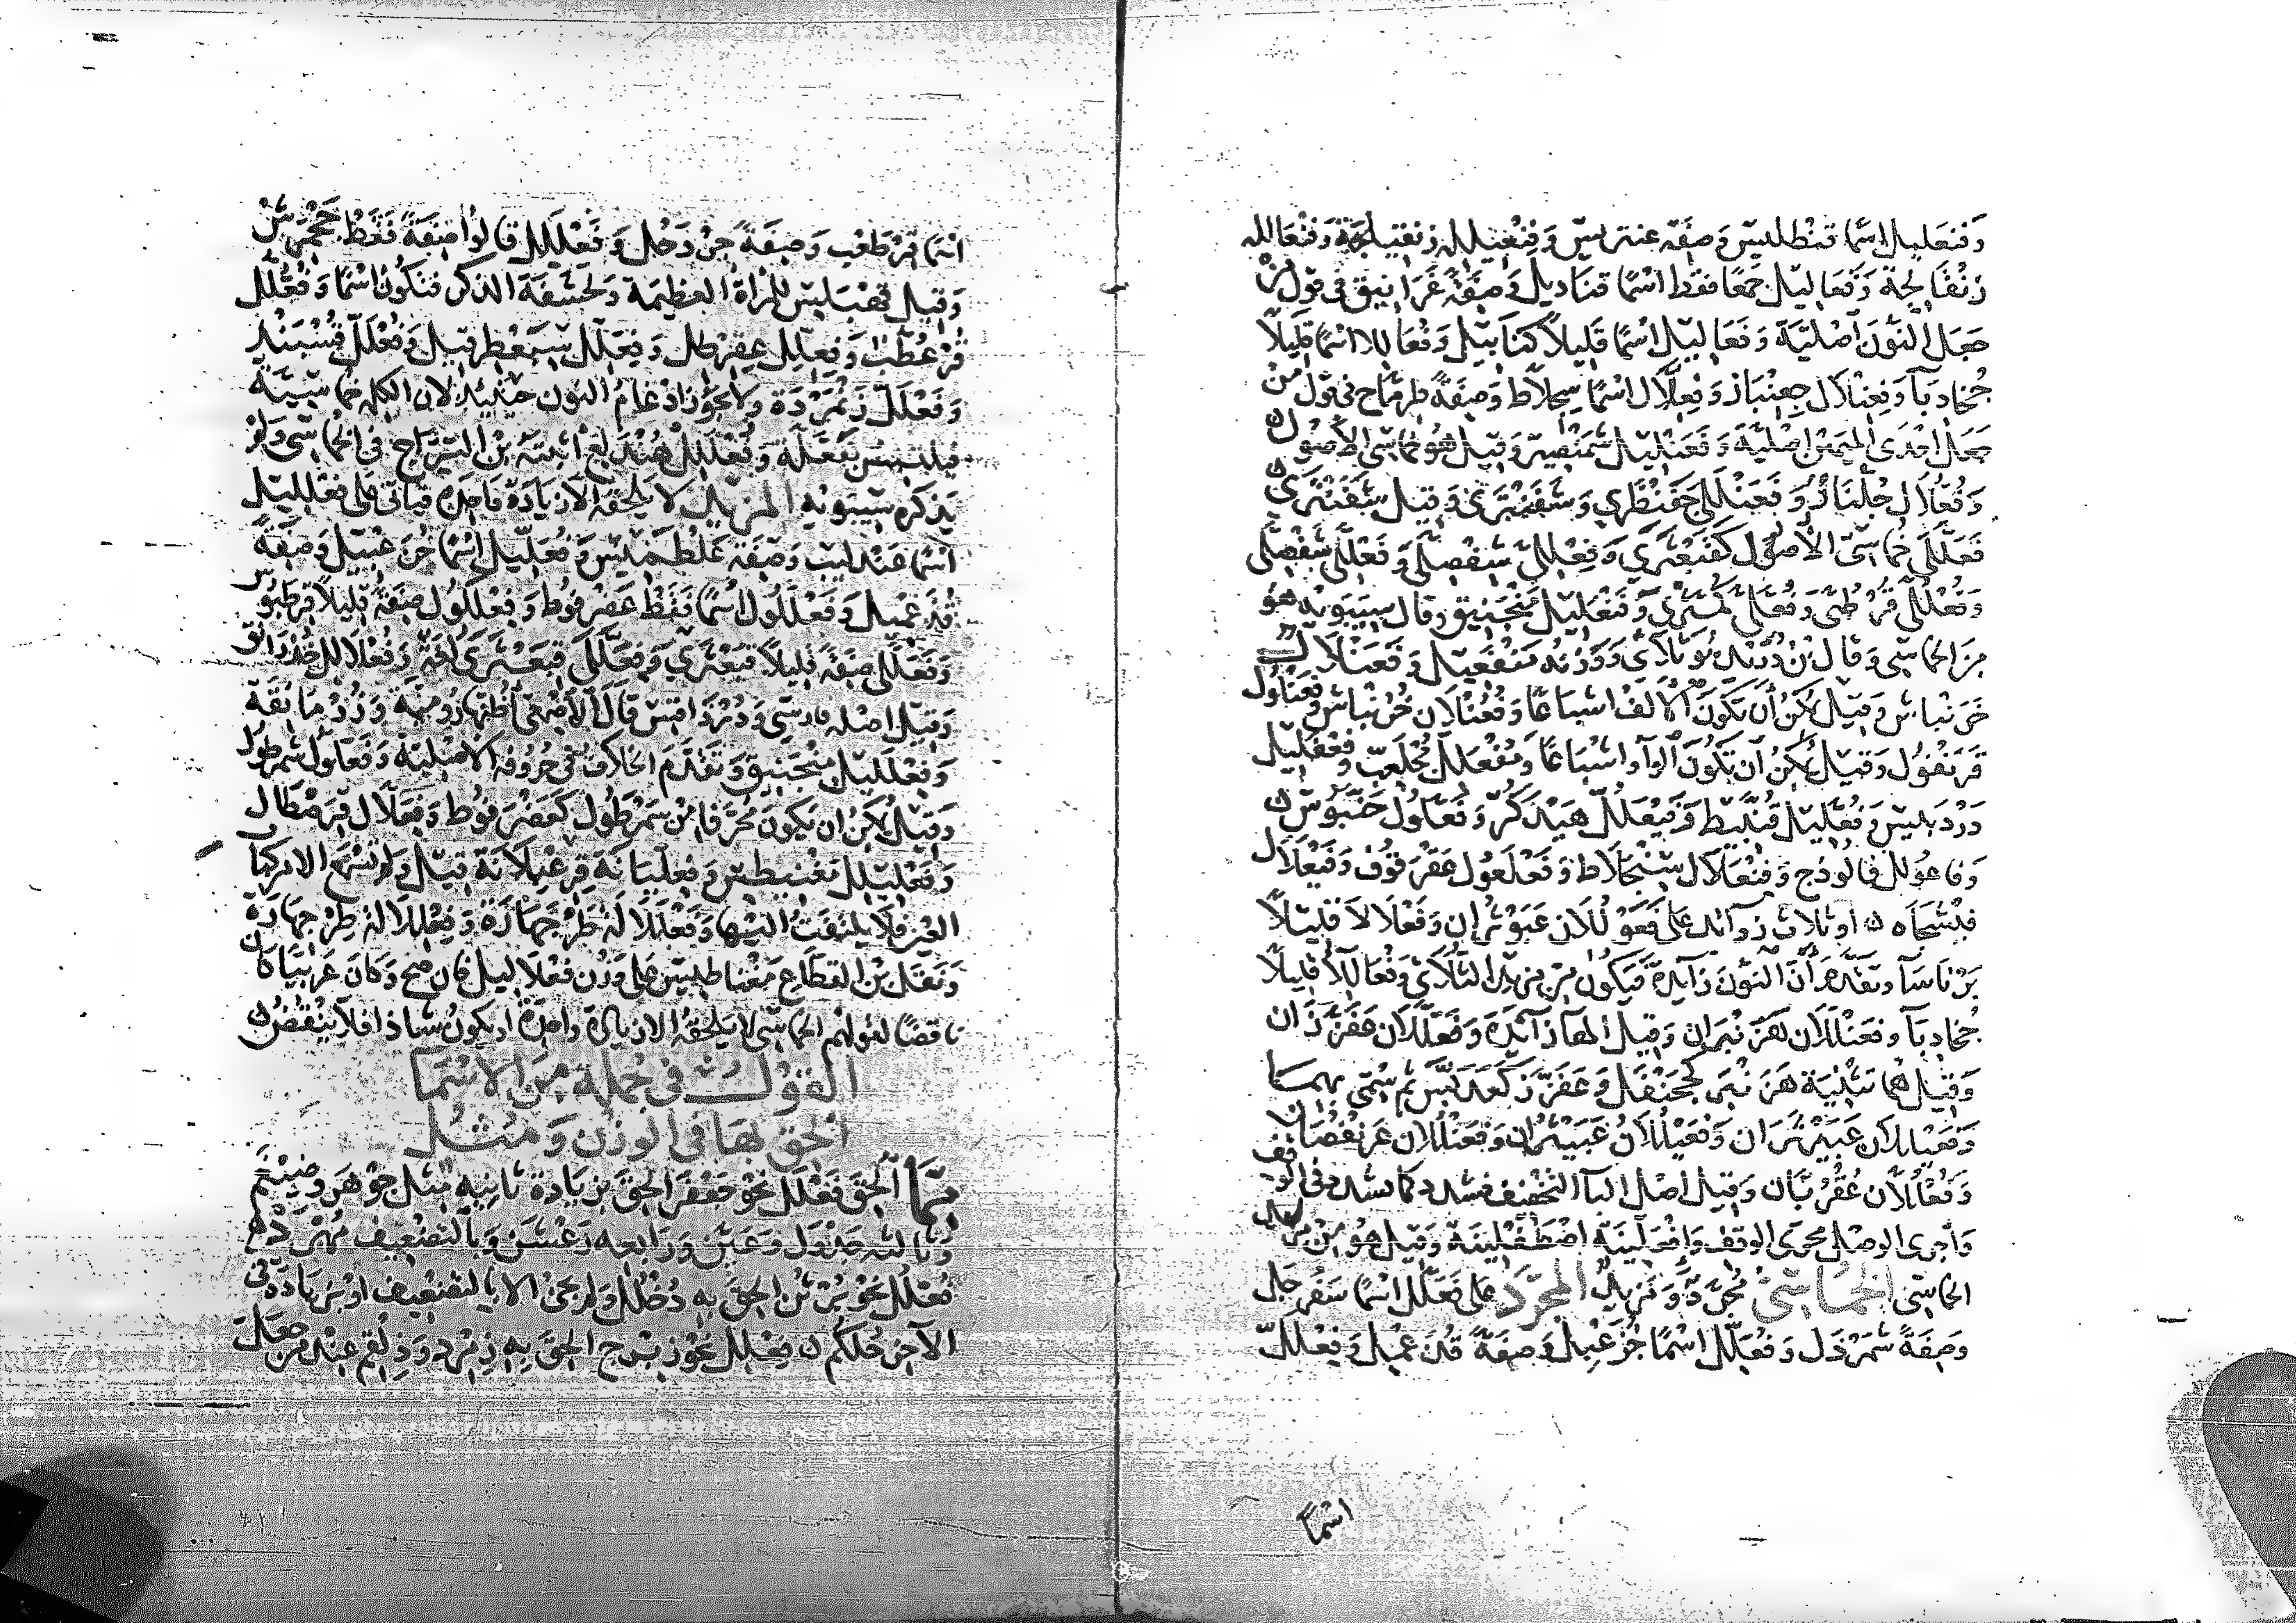 وَفَنعَلِيل اسْمًا قَنْطَلِيس وَصِفَة عنتريس وَفِنْعِيلِلة زنفيلجة وَفنعَاللة
زَنْفَالِجَة وَفَعَالِيل جَمْعًا فقط اسْمًا قَنَادِيل وَصِفَةً غَرَانِيق في قول من
جَعَل النُّونَ أصْلِيَّة وَفُعَالِيل اسْمًا قَلِيلًا كُنَابِيل وَفُعَالِلا اسْمًا قَلِيلًا
جُخَادِبَا وَفِعِنْلَال جِعِنْبَار وَفِعِلَّال اسْمًا سِجِلَّاط وَصِفَةً طِرِمَّاح في قول من
جَعَل احْدَى الميمَيْن أصْلِيَّة وَفَعَنْلِيل شَمَنْصِير وَقِيل هُو خماسي الأصُول
وَفُعُلَّال جُلُنَّار وَفَعَنْلَلِي جَفَنْظَرِي وَشَفَنْتَرَى وَقِيل شَفَنْتَرَى
فَعَلَّلَى خماسي الأصُول كَقَبَعْثَرَى وَفِعْلِلَّى شِفْصِلَّى وَفَعْلَلَّى شَفْصَلَّى
وَفُعْلُلَّى قُرْطُبَّى وَفُعَّلَى كُمَّثْرَى وَفَنْعَلِيل مَنْجَنِيق وقال سيبويه هو
مِنَ الخماسي وَقَال بن دُرَيْد ثُلَاثِي وَوَزْنُه مَنْفَعِيل وَفَعَنْلَال
خَرَنْبَاش وَقِيل يمكن أن تكون الألف اشباعًا وَفُعُنْلَال خُرُنْبَاش وفَعَنْلُول
قَرَنْفُول وَقِيل يمكن أن تكون الواو اشْبَاعًا وَمُفْعَلَلّ مُجْلَعَبّ وفَعْفَلِيل
دَرْدَبِيس وَفُعَّلِيل قُنَّبِيط وَفَيْعَلُلّ هَيْدَكُرّ وَفَعَّلُول خَنَّبُوس
وَفَاعُولَل فَالُوذَج وَفِنْعَلَال سِنْجِلَاط وَفَعْلَعُول عَقْرَقُوف وَفَيْعَلَال
فَيْشَجَاه أو ثلاث زوائد على فَعَوْلُلَان عَبَوْثُرَان وَفَعْلَالَا قَلِيلًا
بَرْنَاسَا وتقدم أنَّ النُّون زَائِدة فيكون من مزيد الثلاثي وَفُعَالِلَا قليلًا
جُخَادِبَا وَفَعَنْلَلَان هَزَنْبَرَان وَقِيل الهاء زائدة وَفَعَلَّلَان عَفَزَّرَان
وَقِيل هما تَثْنِيَة هَزَنْبَر كَجَحَنْفَل وَعَفَزَّر كَعَدَبَّس ثم سُمِّي بهما
وَفَعَيْلَلَان عَبَيْثَرَان وَفَعَيْلُلَان عَبَيْثُرَان وَفَعَنْلُلَان عَرَنْقُصَان
وَفُعْلُلَّان عُقْرُبَّان وَقِيل أصل الباء التخفيف فشدد كما يشدد في الوقف
وَأجرى الوصل مجرى الوقف وَافْعَلِّينَة اصْطَفْلِينَة وَقِيل هُو من مزيد
الخماسي الخُمَاسِيّ مُجَرَّد وَمَزِيد المجَرَّد على فَعَلَّل اسْمًا سَفَرْجَل
وصِفَةً شَمَرْدَل وَفُعَلِّل اسْمًا خُزَعْبِل وَصِفَةً قُذَعْمِل وَفِعْلَلّ
اسْمًا
اسْمًا قِرْطَعْب وَصِفَةً جِرْدَحْل وَفَعْلَلِل قالوا صِفَةً فَقَط جَحْمَرِش
وَقِيل قَهْبَلِس للمرأة العظيمة وَلحَشَفَة الذكر فتكون اسْمًا وَفُعْلُلّ
قُرْعُطُب وَفِعْلِلّ عِقِرْطِل وَفِعَلِّل سِبَعْطِر قيل وَفُعْلَلِل قُسْبَنْد
وَفَعْلَلَل زَنْمَرْدَة ولا يجوز ادغام النون حينئذ لان الكلمة خماسيية
فيلتبس بفَعَّلَة وَفُعْلَلِل هُنْدَلِع أثبته بن السراج في الخماسي وَلم
يَذكره سيبويه المزيد لا يلحقه الا زيادة واحدة فيأتي على فَعْلَلِيل
اسْمًا عَنْدَلِيب وَصِفَة عَلْطَمِيس وَفُعَلِّيل اسْمًا خُزَعْبِيل وَصِفَةً
قُذَعْمِيل وَفَعْلَلُول اسْمًا فَقَط عَضْرَفُوط وَفِعْلَلُول صِفَةً قَلِيلًا قِرْطَبُوس
وَفَعَلَّلَى صِفَةً قَلِيلًا قَبَعْثَرَى وَفِعَلَّلَى قِبَعْثَرَى لغة وَفُعْلَالِل خُذْرَانِق
وَقِيل اصله فارسي وَدُرْدَاقِس قال الأصمعي أظنها رُومِيَّة وَزُرْمَانِقَة
وَفَعْلَلِيل مَنْجَنِيق وَتَقَدَّم الخلاف في حُرُوفه الأصلية وَفَعَلُّول شَمَرْطُول
وَقِيل يمكن ان يكون مُحَرَّفًا من شَمْرَطُول كَعَضْرَفُوط وَفِعِلَّال قِرِصْطَال
وَفَعْلَلِيل مَغْنَيطِس وَفِعْلِيَانَة قِرْعَبْلَانَة قيل وَلم تسمع الا من كتاب
العين فلا يلتفت اليها وَفَعْلَلَالَة طَرْجَهَارَة وَفِعْلِلَالَة طِرْجِهَارَة
وَنَقَل بن القطاع مَغْنَاطِيس على وَزْن فَعْلَالِيل فان صَحَّ وَكان عَرَبِيًّا كان
ناقضًا لقولهم الخماسي لا يلحقه الا زيادة واحدة أو يكون شاذا فلا ينقض
القول في جُملة من الأسْمَا
الحق بهَا في الوزْن وَمُثُل
مِمَّا ألحِق فَعْلَل نحو جَعْفَر الحِق بزيادة ثانية مثل جَوْهَر وَضَيْغَم
وثالثه جَدْوَل وَعِثْيَر وَرَابعه رَعْشَن وَبالتضعيف مَهْدَد
فُعْلُل نحو بُرْثُن الحِق به دُخْلُل وَلم يجئ الا بالتضعيف أو بزيادة في
الآخر حُلْكُم فِعْلِل نحو زِبْرِج الحق به زِمْرِد وَدِلْقِم عند من جعَل